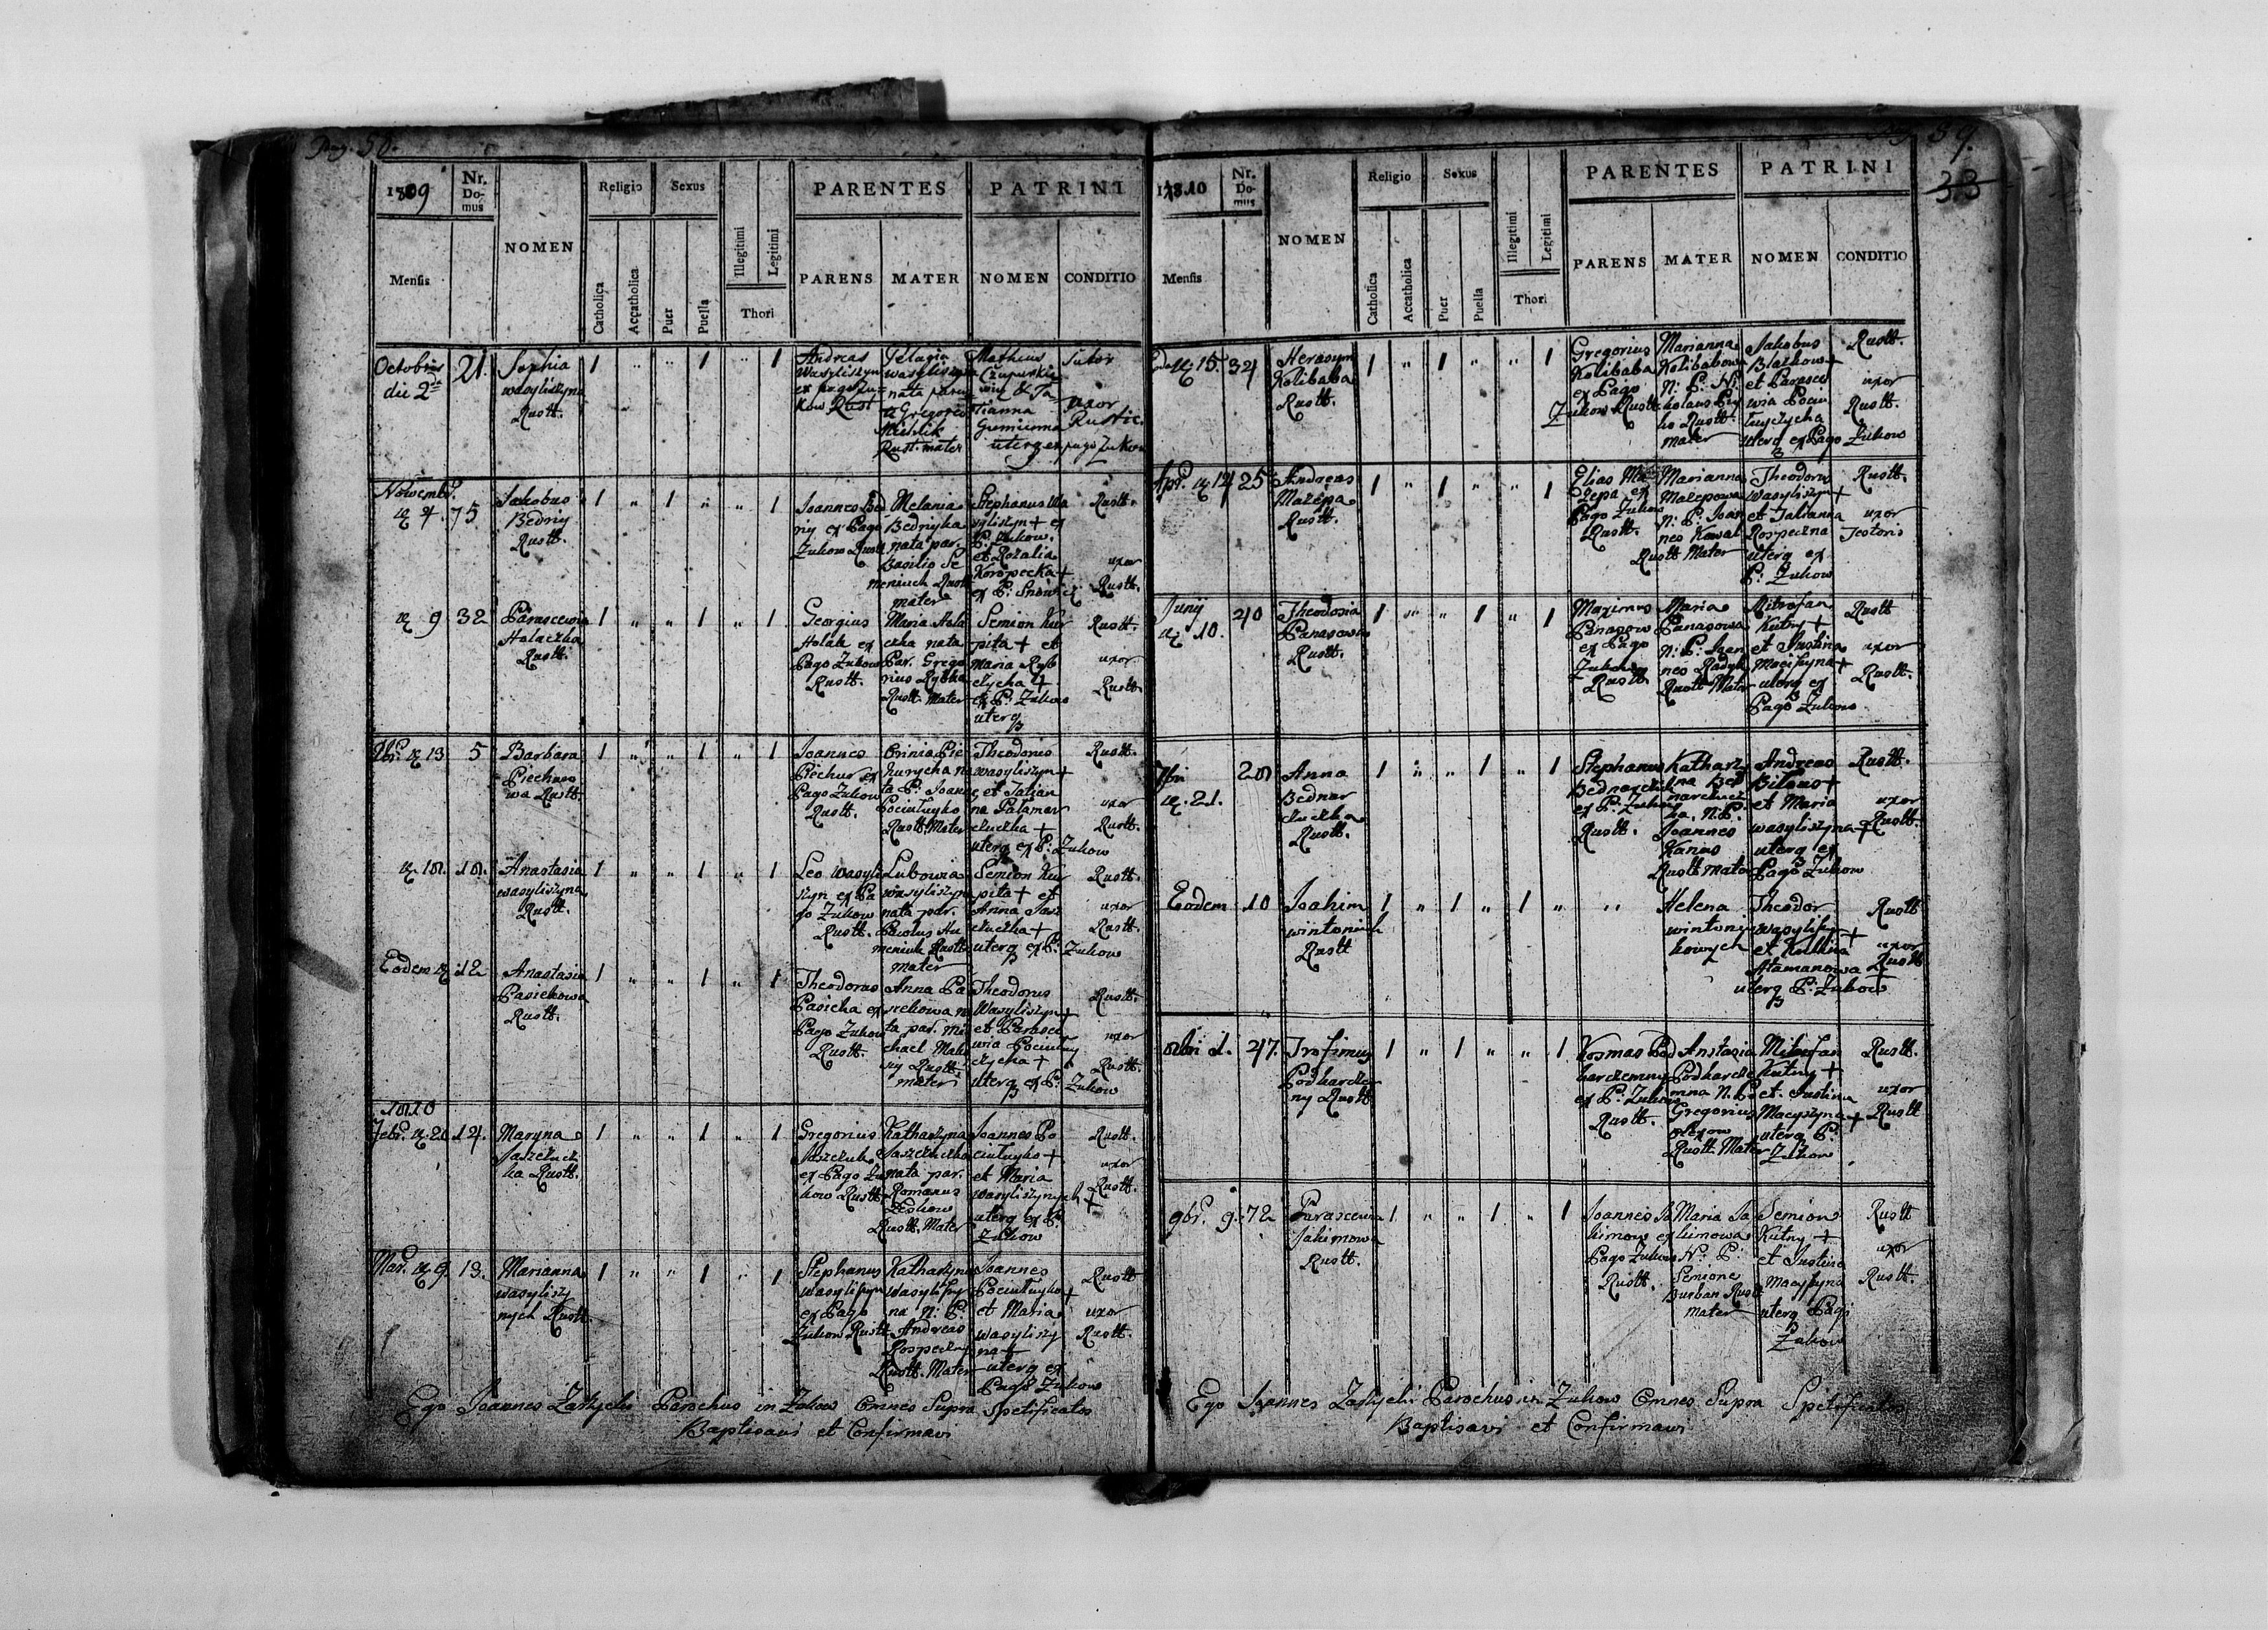 Pag. 58.
1809
Nr. Domus
NOMEN
Religio
Sexus
Illegitimi
Legitimi
PARENTES
PATRINI
Mensis
Catholica
Accatholica
Puer
Puella
Thori
PARENS
MATER
NOMEN
CONDITIO
Octobris
die 2
21.
Sophia
wasyliszyna
Rustt.
1 " " 1 " 1
Andreas
Wasyliszyn
ex pago Zu-
kow Rust
Pelagia
wasyliszyn
nata paren
Gregorio
Rust. mater
Matheus
et Ta-
tianna
Gumienna
uterq ex pago Zukow
Sutor
uxor
Rustic.
Novembr.
4.
75
Jakobus
Bedriy
Rustt.
1 " 1 " " 1
Joannes Bed
riy ex Pago
Zukow Rustt
Melania
Bedryha
nata par.
Basilio Se
meniuch Rustt
mater
Stephanus Wa
syliszyn + ex
P. Zukow.
et Rozalia
Koropecka +
ex P.
Rustt.
uxor
Rustt.
9
32
Parascewia
Holaczka
Rustt.
1 " " 1 " 1
Georgius
Holak ex
Pago Zukow
Rustt.
Maria Hola
czka nata
Par. Grego
rius Rybka
Rustt. Mater
Semion Kur
pita + et
Maria Ryb
czycha +
ex P. Zukow
uterq
Rustt.
uxor
Rustt.
13
5
Barbara
Piechuro
wa Rustt.
1 " " 1 " 1
Joannes
Piechur ex
Pago Zukow
Rustt.
Orinia Pie
hurycha na
ta P. Joann
Pociutuyko
Rustt. Mater
Theodorus
wasyliszyn +
et Tatian
na Patamar
czuczka +
uterq ex P: Zukow
Rustt.
uxor
Rustt.
18.
18.
Anastasia
wasyliszyna
Rustt.
1 " " 1 " 1
Leo Wasyli
szyn ex Pa
go Zukow
Rustt.
Lubowia
wasyliszyn
nata par.
Paulus Hu
meniuk Rustt
mater
Semion Kur
pita + et
Anna Jasz
czuczka +
uterq ex P: Zukow
Rustt.
uxor
Rustt.
Eodem
12
Anastasia
Pasiekowa
Rustt.
1 " " 1 " 1
Theodorus
Pasieka ex
Pago Zukow
Rustt.
Anna Pa
siekowa na
ta par. Mi
chael
Rustt.
mater
Theodorus
Wasyliszyn +
et Parasce
wia Pociutuy
czycha +
uterq ex P: Zukow
Rustt.
uxor
Rustt.
1810
Febr. 20
14.
Maryna
Jaszczucz
ka Rustt.
1 " " 1 " 1
Gregorius
Jaszczuk
ex Pago Zu
kow Rustt
Katharzyna
Jaszczuczka
nata par.
Romanus
Leskow
Rustt. Mater
Joannes Po
ciutuyko +
et Maria
wasyliszynych +
uterq ex P.
Zukow
Rustt.
uxor
Rustt.
Mar. 9.
13.
Marianna
wasylisz
nych Rustt.
1 " " 1 " 1
Stephanus
wasyliszyn
ex Pago
Zukow Rustt.
Katharzyna
wasyliszy
na N: P.
Andreas
Rospeczny
Rustt. Mater
Joannes
Pociutuyko +
et Maria
wasyliszy
na +
uterq ex
Pago Zukow
Rustt
uxor
Rustt.
Ego Joannes Parochus in Zukow Omnes Supra Spetificatos
Baptisavi et Confirmavi
59.
33
1810
Nr. Domus
NOMEN
Religio
Sexus
Illegitimi
Legitimi
PARENTES
PATRINI
Mensis
Catholica
Accatholica
Puer
Puella
Thori
PARENS
MATER
NOMEN
CONDITIO
15.
34
Herasym
Kolibaba
Rustt.
1 " 1 " " 1
Gregorius
Kolibaba
ex Pago
Zukow Rustt
Marianna
Kolibabowa
N: P: Ni
kolaus
Rustt.
mater
Jakobus
Blazkow +
et Parasce
wia Pociu
tuyczycha
uterq ex Pago Zukow
Rustt.
uxor
Rustt.
Apr. 14
25
Andreas
Mazepa
Rustt.
1 " 1 " " 1
Elias Ma
zepa ex
Pago Zukow
Rustt.
Marianna
Mazepowa
N: P: Joan
nes Kowal
Rustt Mater
Theodorus
Wasyliszyn +
et Julianna
Rospeczna
uterq ex
P: Zukow
Rustt.
uxor
Textoris
Juny
10.
40
Theodosia
Panasowa
Rustt.
1 " " 1 " 1
Maximus
Panasow
ex Pago
Zukow
Rustt
Maria
Panasowa
N: P: Joan
nes
Rustt Mater
Mitrofan
Kutny +
et Justina
Maciszyna +
uterq ex
Pago Zukow
Rustt
uxor
Rustt.
7bri
21.
28
Anna
Bednar
czuczka
Rustt.
1 " " 1 " 1
Stephanus
Bednarczuk
ex P: Zukow
Rustt.
Katharz
na Bed
narczucz
ka. N. P.
Joannes
Kanas
Rustt Mater
Andreas
Bilous +
et Maria
wasyliszyna +
uterq ex
Pago Zukow
Rustt.
uxor
Rustt.
Eodem
10
Joahim
wintoniuk
Rustt
1 " 1 " 1 "
"
Helena
wintoniu
kowych
Theodor
Wasylisz +
et
Atamanowa +
uterq P: Zukow
Rustt
uxor
Rustt
8bri 1.
47.
Trofimus
Podharcze
ny Rustt
1 " 1 " " 1
Kosmas Pod
harczemny
ex P: Zukow
Rustt.
Anstazia
Podharcze
mna N. P.
Gregorius
Rustt Mater
Mitrofan
Kutny +
et. Justina
Macyszyna +
uterq P:
Zukow
Rustt.
uxor
Rustt
9br. 9.
72
Parascewia
Jakimowa
Rustt.
1 " " 1 " 1
Joannes Ja
kimow ex
Pago Zukow
Rustt.
Maria Ja
kimowa
N: P:
Semione
Burban Rustt
mater
Semion
Kutny +
et Justina
Macyszyna
uterq Pagi
Zukow
Rustt
uxor
Rustt.
Ego Joannes Parochus in Zukow Omnes Supra Spetificatos
Baptisavi et Confirmavi